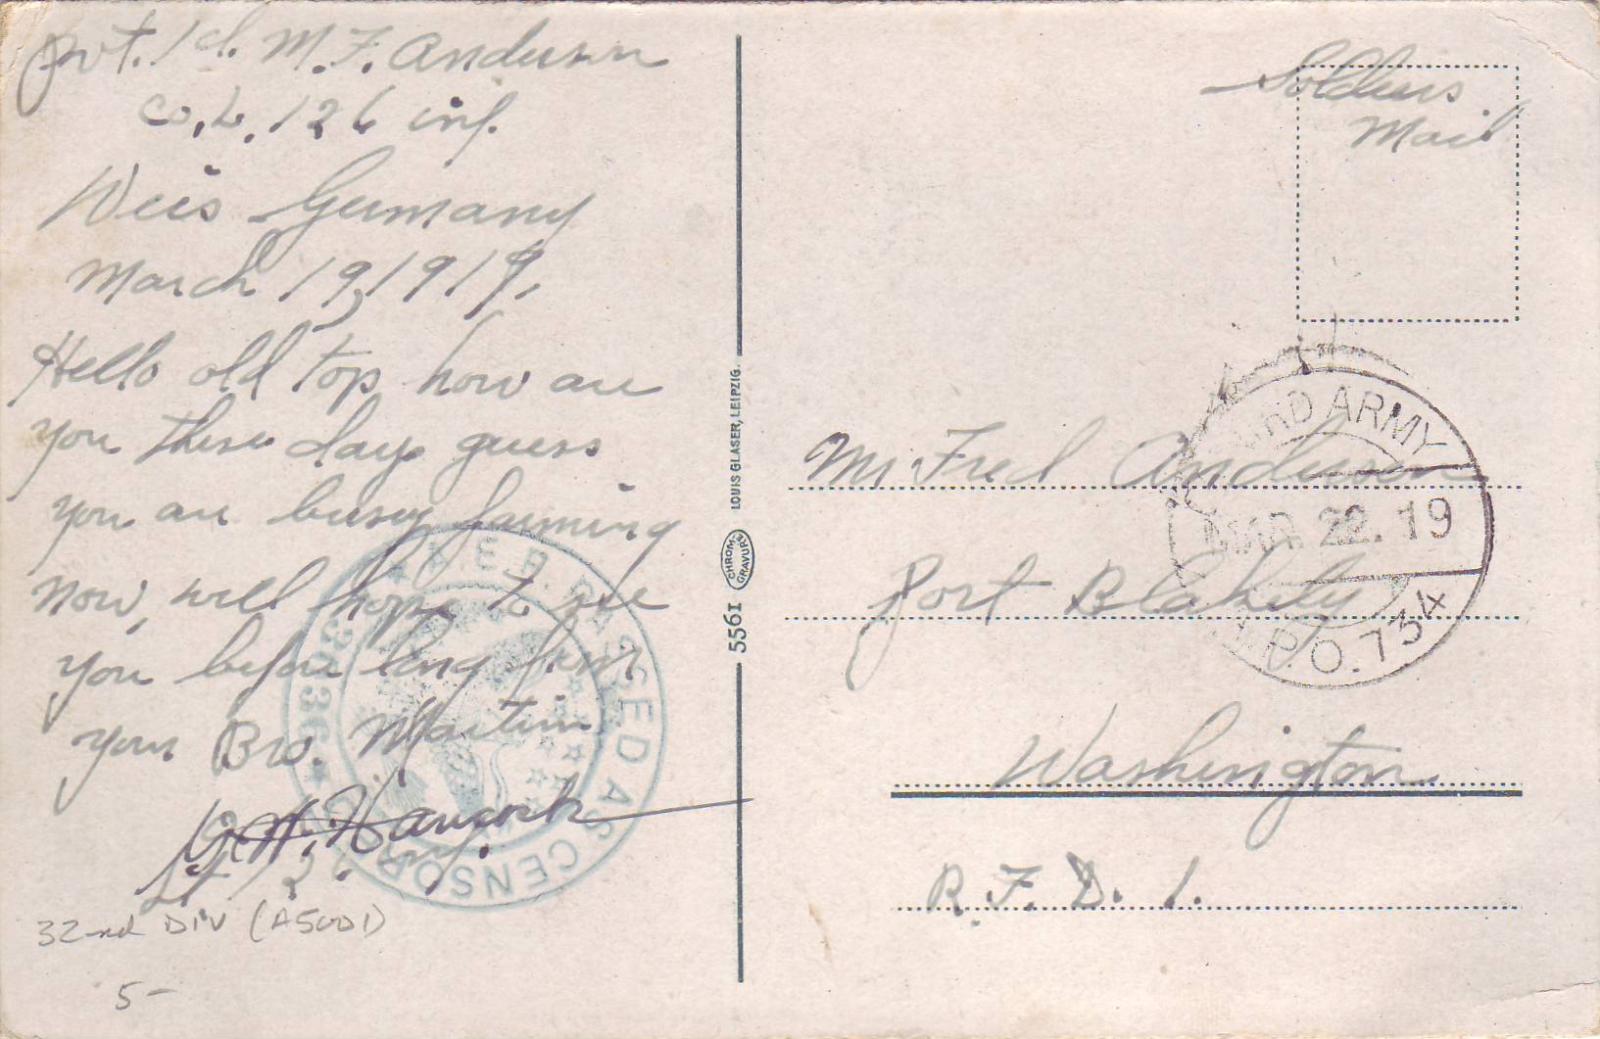 Pvt. 1 cl. M. F. Anderson
Co. L. 126 inf.
Weis Germany
March 19, 1919,
Hello old top how are
you these days guess
you are busy farming
now, will hope to see
you before long from
your Bro. Martin
Hancock
Lt 126 Inf.
32nd DIV (A5001)
5-
A.E.F. PASSED AS CENSORED
5561
CHROM-
GRAVURE
LOUIS GLASER, LEIPZIG.
Soldiers
Mail
THIRD ARMY
MAR. 22. 19
A.P.O. 734
Mr Fred Anderson
Port Blakely
Washington
R. F. D. 1.